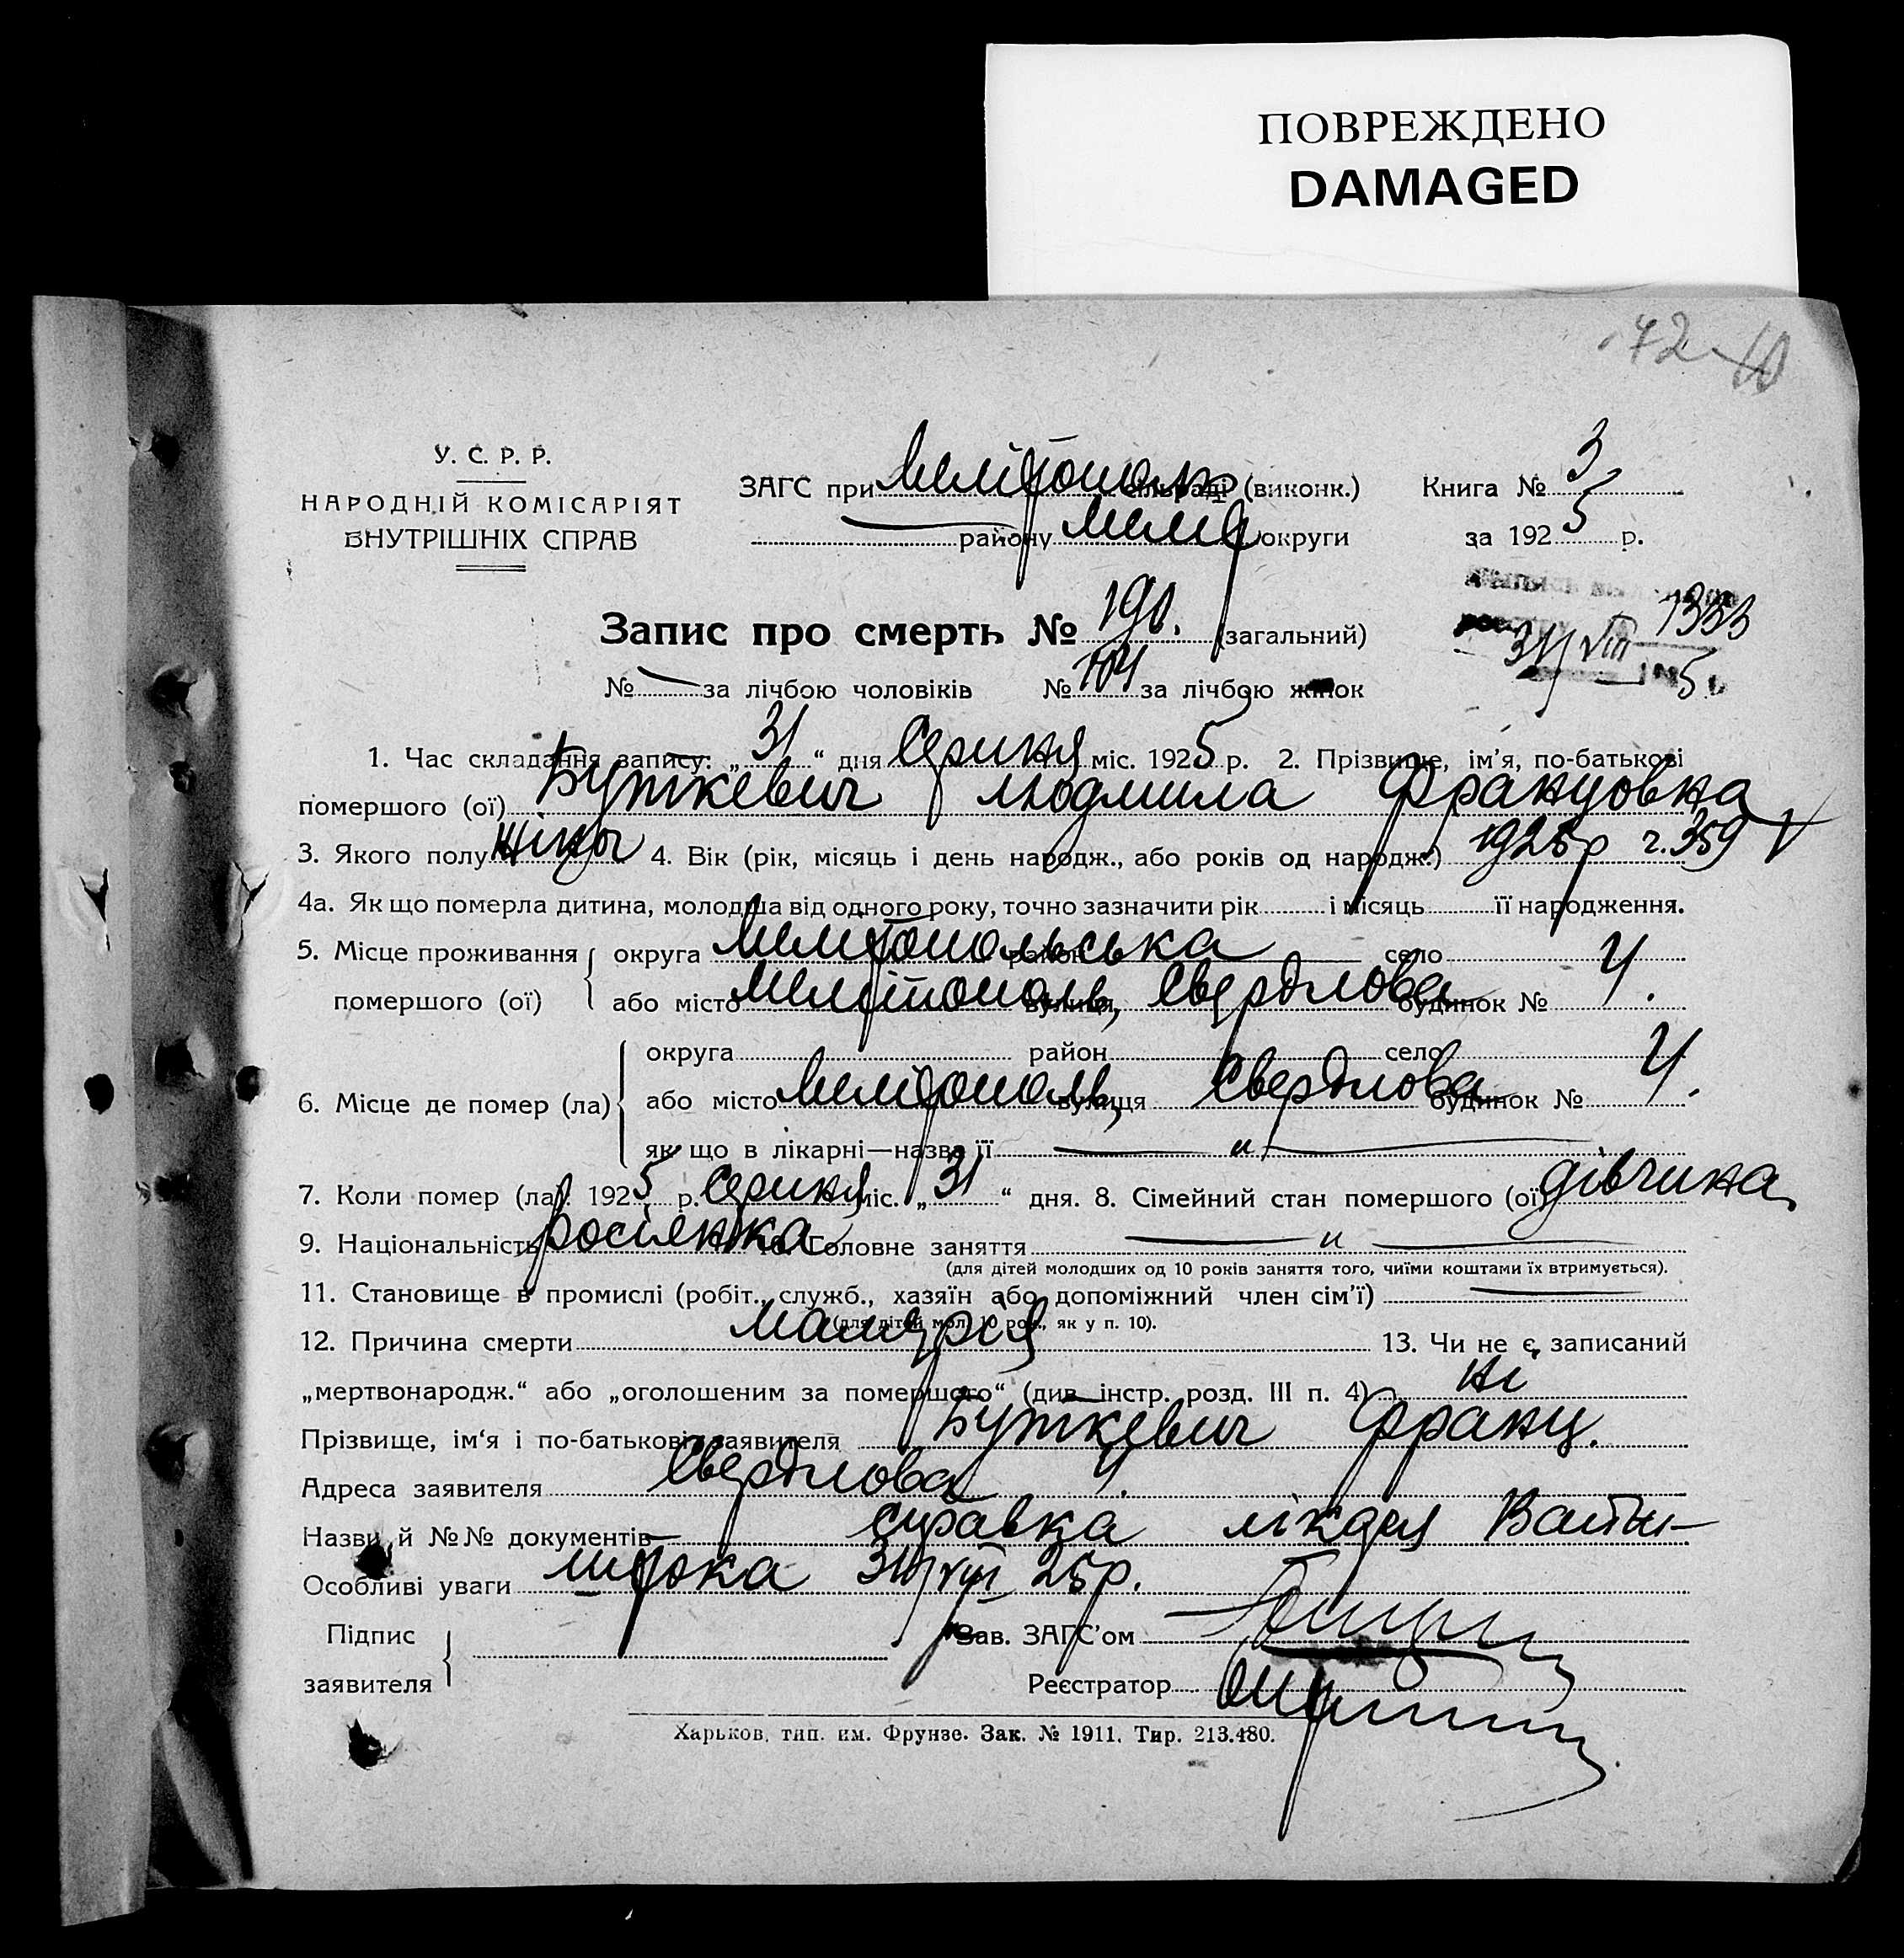 ПОВРЕЖДЕНО
DAMAGED
72
У. С. Р. Р.
НАРОДНІЙ КОМІСАРІЯТ
ВНУТРІШНІХ СПРАВ
ЗАГС при Мелітопольс сільраді (виконк.)
району Мелит округи
Книга № 3
за 1925 р.
Запис про смерть № 190. (загальний)
№ — за лічбою чоловіків № 104 за лічбою жінок
31/VIII 1925
1. Час складання запису: „31“ дня Серпня міс. 1925 р. 2. Прізвище, ім'я, по-батькові
помершого (ої) Буткевич Людмила Францовна
3. Якого полу жіноч 4. Вік (рік, місяць і день народж., або років од народж.) 1925 р ч. 359 V
4а. Як що померла дитина, молодша від одного року, точно зазначити рік і місяць її народження.
5. Місце проживання округа Мелітопольська район — село
помершого (ої) або місто Мелітополь, вулиця Свердлова будинок № 4.
6. Місце де помер (ла) округа район село
або місто Мелітополь, вулиця Свердлова будинок № 4.
як що в лікарні—назва її — „ —
7. Коли помер (ла) 1925 р. Серпня міс. „31“ дня. 8. Сімейний стан помершого (ої) дівчина
9. Національність росіянка 10. Головне заняття — „ —
(для дітей молодших од 10 років заняття того, чиїми коштами їх втримується).
11. Становище в промислі (робіт., служб., хазяїн або допоміжний член сім'ї) —
(для дітей мол. 10 рок., як у п. 10).
12. Причина смерти Малярія 13. Чи не є записаний
„мертвонародж.“ або „оголошеним за померщого“ (див. інстр. розд. III п. 4) ні
Прізвище, ім'я і по-батькові заявителя Буткевич Франц.
Адреса заявителя Свердлова 4.
Назви й №№ документів справка лікаря
Особливі уваги 31/VIII 25 р.
Підпис
заявителя
Зав. ЗАГС'ом
Реєстратор
Харьков, тип. им. Фрунзе. Зак. № 1911. Тир. 213.480.